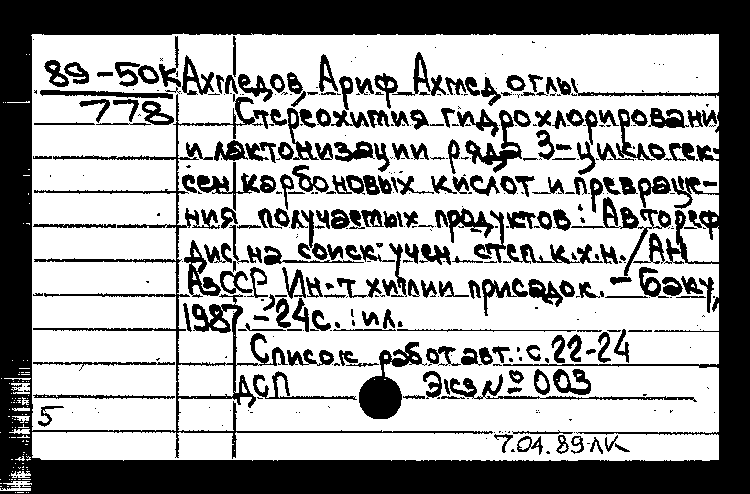 89-50к Ахмедов Ариф Ахмед оглы
778 Стереохимия гидрохлорировани
и лактонизации ряда 3-циклогек-
сен карбоновых кислот и превраще-
ния получаемых продуктов: Автореф
дис на соиск. учен. степ. к.х.н. / АН
АзССР Ин-т химии присадок. - Баку,
1987. - 24с. : ил.
Список работ авт.: с. 22-24
ДСП Экз № 003
5
7.04.89 ЛК